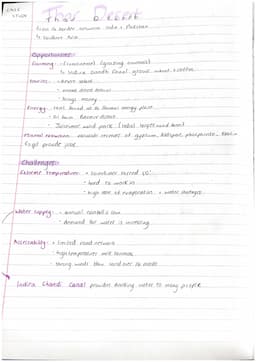 CASE STUDY
Thar Desert
↳ Southern Asia
Opportunities:
Farming: • (subsistence) (grazing animals)
↳ Indira Gandhi Canal grows wheat + cotton
Tourism: • desert safaris
• brings money
Energy: • coal found at
• Oil Barmer district
• Jaisalmer wind park (India's largest wind farm)
Mineral resources: valuable reserves of gypsum, feldspar, phosphorite, kaolin
Challenges:
Extreme temperature: • sometimes exceed 50°
• hard to work in
• high rate of evaporation → water shortages
Water supply: • annual rainfall is low
• demand for water is increasing
Accessibility: • limited road network
• high temperatures melt tarmac
• strong winds blow sand over the roads
Indira Ghandi Canal provides drinking water to many people